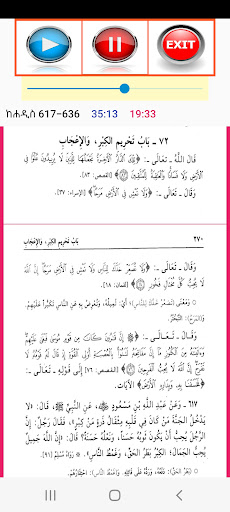 EXIT
ከሐዲስ 617-636 35:13 19:33
٧٢ - بَابُ تَحْرِيمِ الكِبْرِ، وَالإِعْجَابِ
قَالَ اللَّهُ - تَعَالَى -: ﴿تِلْكَ الدَّارُ الْآخِرَةُ نَجْعَلُهَا لِلَّذِينَ لَا يُرِيدُونَ عُلُوًّا فِي
الْأَرْضِ وَلَا فَسَادًا وَالْعَاقِبَةُ لِلْمُتَّقِينَ﴾ [القصص: ٨٣].
وَقَالَ - تَعَالَى -: ﴿وَلَا تَمْشِ فِي الْأَرْضِ مَرَحًا﴾ [الإسراء: ٣٧].
٢٧٠ بَابُ تَحْرِيمِ الكِبْرِ، وَالإِعْجَابِ
وَقَالَ - تَعَالَى -: ﴿وَلَا تُصَعِّرْ خَدَّكَ لِلنَّاسِ وَلَا تَمْشِ فِي الْأَرْضِ مَرَحًا إِنَّ اللَّهَ
لَا يُحِبُّ كُلَّ مُخْتَالٍ فَخُورٍ﴾ [لقمان: ١٨].
وَمَعْنَى «تُصَعِّرْ خَدَّكَ لِلنَّاسِ» أَيْ: تُمِيلُهُ، وَتُعْرِضُ بِهِ عَنِ النَّاسِ تَكَبُّرًا عَلَيْهِمْ.
وَ«المَرَحُ»: التَّبَخْتُرُ.
وَقَالَ - تَعَالَى -: ﴿إِنَّ قَارُونَ كَانَ مِنْ قَوْمِ مُوسَى فَبَغَى عَلَيْهِمْ
وَآتَيْنَاهُ مِنَ الْكُنُوزِ مَا إِنَّ مَفَاتِحَهُ لَتَنُوءُ بِالْعُصْبَةِ أُولِي الْقُوَّةِ إِذْ قَالَ لَهُ قَوْمُهُ لَا
تَفْرَحْ إِنَّ اللَّهَ لَا يُحِبُّ الْفَرِحِينَ﴾ [القصص: ٧٦] إِلَى قَوْلِهِ - تَعَالَى -:
﴿فَخَسَفْنَا بِهِ وَبِدَارِهِ الْأَرْضَ﴾ الآيَاتِ.
٦١٧ - وَعَنْ عَبْدِ اللَّهِ بْنِ مَسْعُودٍ، عَنِ النَّبِيِّ ﷺ، قَالَ: «لَا
يَدْخُلُ الجَنَّةَ مَنْ كَانَ فِي قَلْبِهِ مِثْقَالُ ذَرَّةٍ مِنْ كِبْرٍ» فَقَالَ رَجُلٌ: إِنَّ
الرَّجُلَ يُحِبُّ أَنْ يَكُونَ ثَوْبُهُ حَسَنًا، وَنَعْلُهُ حَسَنَةً؟ قَالَ: «إِنَّ اللَّهَ جَمِيلٌ
يُحِبُّ الجَمَالَ؛ الكِبْرُ بَطَرُ الحَقِّ، وَغَمْطُ النَّاسِ» رَوَاهُ مُسْلِمٌ [(٩١)].